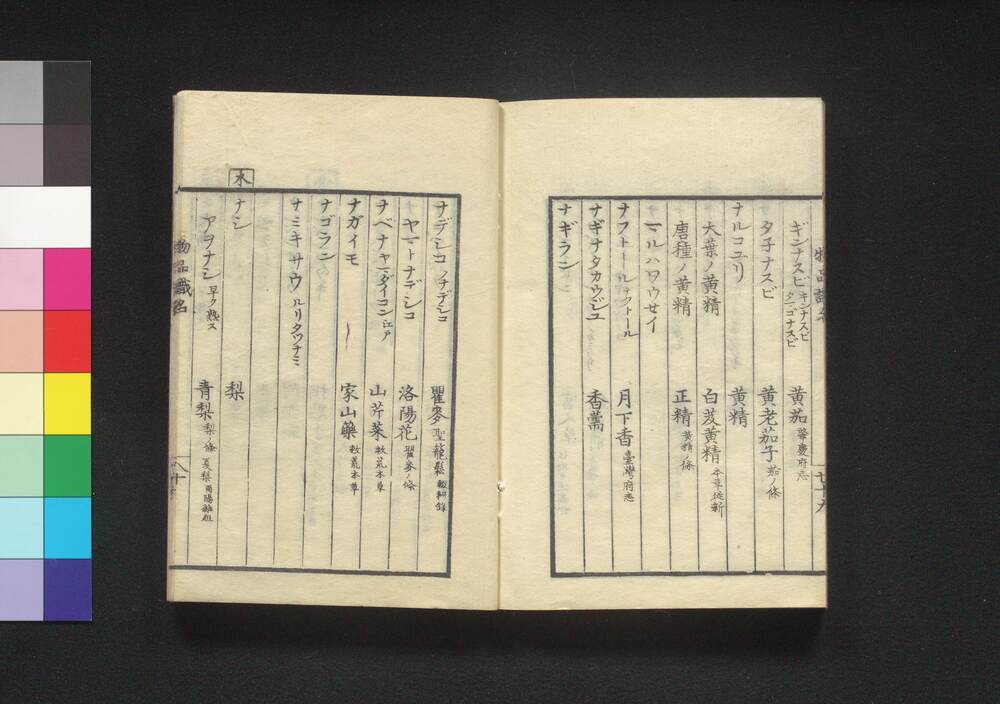 ギンナスビ キンナスビ タマゴナスビ 黄茄 肇慶府志
タチナスビ 黄老茄子 茄ノ條
ナルコユリ 黄精
大葉ノ黄精 白芨黄精 本草従新
唐種ノ黄精 正精 黄精ノ條
マルハワウセイ
ナフトール ルナフトール 月下香 臺灣府志
ナギナタカウジユ 香薷
ナギラン
ナデシコ ノナデシコ 瞿麥 聖籠鬆 輟耕録
ヤマトナデシコ 洛陽花 瞿麥ノ條
ナベナ ヤマダイコン 江戸 山芥菜 救荒本草
ナガイモ 家山藥 救荒本草
ナゴラン
ナミキサウ ルリタツナミ
木
ナシ 梨
アヲナシ 早ク熟ス 青梨 梨ノ條 夏梨
物品識名